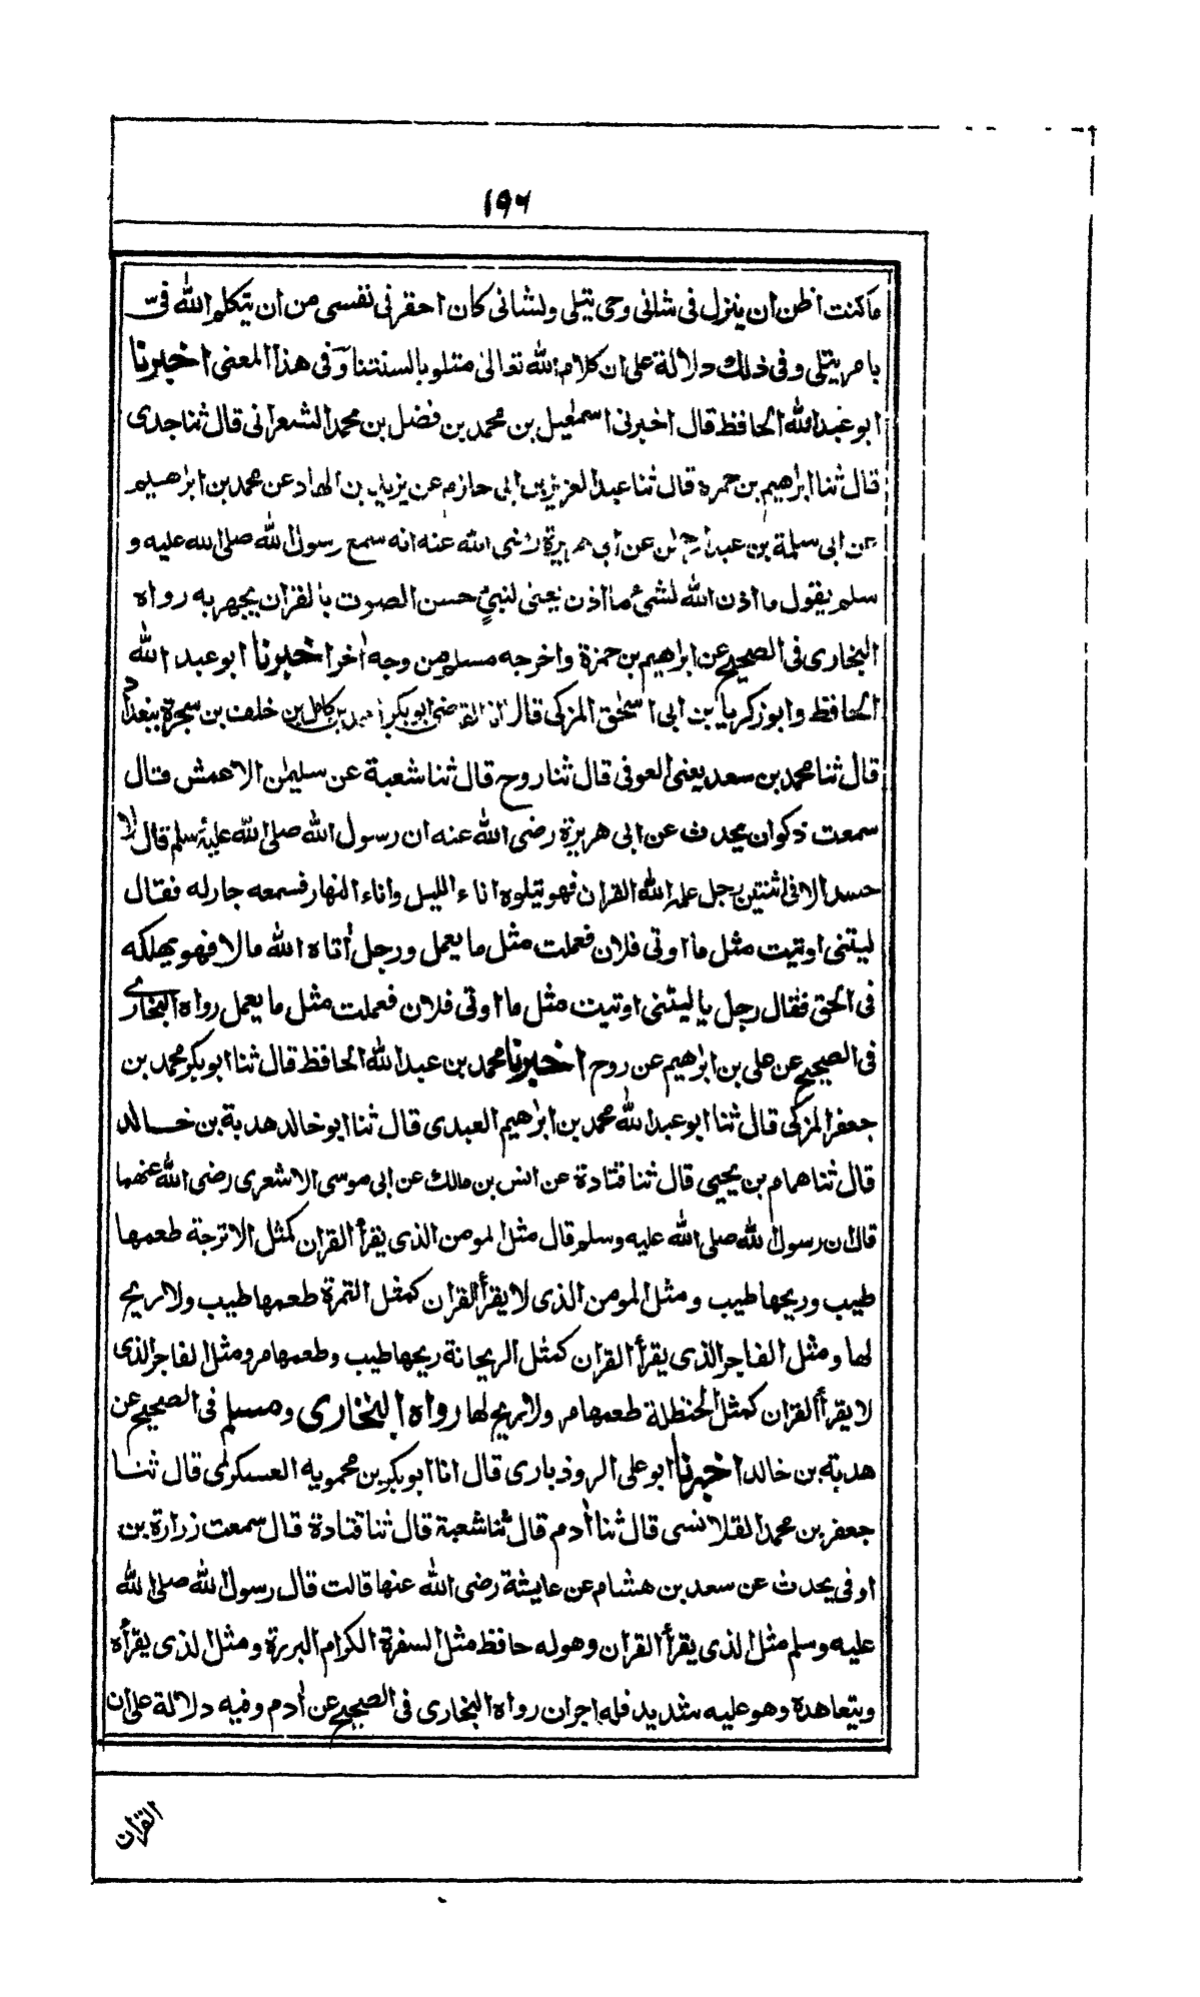 ١٩٦
ما كنت اظن ان ينزل فى شانى وحى يتلى ولشانى كان احقر فى نفسى من ان يتكلم الله فىّ
بامر يتلى وفى ذلك دلالة على ان كلام الله تعالى متلو بالسنتنا وفى هذا المعنى اخبرنا
ابو عبد الله الحافظ قال اخبرنى اسمٰعيل بن محمد بن فضل بن محمد الشعرانى قال ثنا جدى
قال ثنا ابرٰهيم بن حمزه قال ثنا عبد العزيز بن ابى حازم عن يزيد بن الهاد عن محمد بن ابرٰهيم
عن ابى سلمة بن عبد الرحمٰن عن ابى هريرة رضى الله عنه انه سمع رسول الله صلى الله عليه و
سلم يقول ما اذن الله لشئ ما أذن يعنى لنبىٍ حسن الصوت بالقران يجهر به رواه
البخارى فى الصحيح عن ابراهيم بن حمزة واخرجه مسلم من وجه أخر اخبرنا ابو عبد الله
الحافظ وابو زكريا بن ابى اسحٰق المزكى قال انا القاضى ابو بكر احمد بن كامل بن خلف بن سجرة ببغداد
قال ثنا محمد بن سعد يعنى العوفى قال ثنا روح قال ثنا شعبة عن سليمٰن الاعمش قال
سمعت ذكوان يحدث عن ابى هريرة رضى الله عنه ان رسول الله صلى الله عليه وسلم قال لا
حسد الا فى اثنتين رجل علمه الله القران فهو يتلوه اناء الليل واناء النهار فسمعه جار له فقال
ليتنى اوتيت مثل ما اوتى فلان فعملت مثل ما يعمل ورجل أتاه الله مالا فهو يهلكه
فى الحق فقال رجل يا ليتنى اوتيت مثل ما اوتى فلان فعملت مثل ما يعمل رواه البخارى
فى الصحيح عن على بن ابرٰهيم عن روح اخبرنا محمد بن عبد الله الحافظ قال ثنا ابو بكر محمد بن
جعفر المزكى قال ثنا ابو عبد الله محمد بن ابرٰهيم العبدى قال ثنا ابو خالد هدبة بن خالد
قال ثنا همام بن يحيى قال ثنا قتادة عن انس بن مالك عن ابى موسى الاشعرى رضى الله عنهما
قال ان رسول الله صلى الله عليه وسلم قال مثل المومن الذى يقرأ القران كمثل الاترجة طعمها
طيب وريحها طيب ومثل المومن الذى لا يقرأ القران كمثل التمرة طعمها طيب ولا ريح
لها ومثل الفاجر الذى يقرأ القران كمثل الريحانة ريحها طيب وطعمها مر ومثل الفاجر الذى
لا يقرأ القران كمثل الحنظلة طعمها مر ولا ريح لها رواه البخارى ومسلم فى الصحيح عن
هدبة بن خالد اخبرنا ابو على الروذبارى قال انا ابو بكر بن محمويه العسكرى قال ثنا
جعفر بن محمد القلانسى قال ثنا أدم قال ثنا شعبة قال ثنا قتادة قال سمعت زرارة بن
اوفى يحدث عن سعد بن هشام عن عايشة رضى الله عنها قالت قال رسول الله صلى الله
عليه وسلم مثل الذى يقرأ القران وهو له حافظ مثل السفرة الكرام البررة ومثل الذى يقرأه
ويتعاهده وهو عليه شديد فله اجران رواه البخارى فى الصحيح عن أدم وفيه دلالة على ان
القران